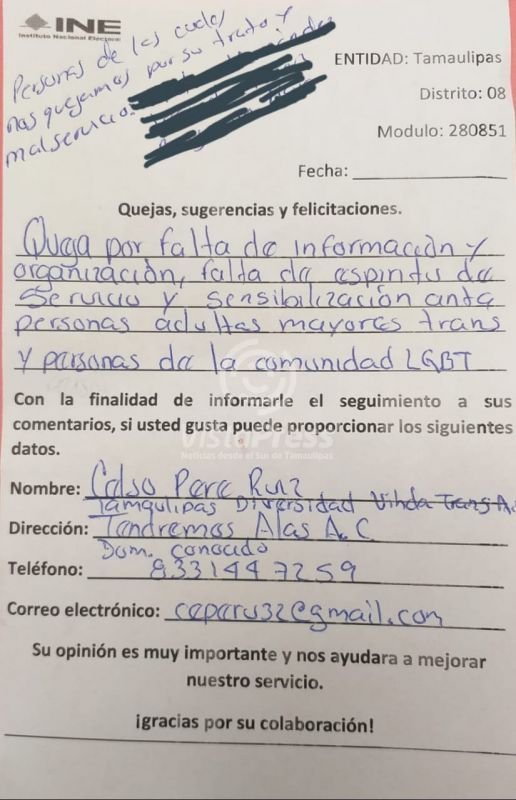 INE
Instituto Nacional Electoral
Personas de las cuales
nos quejamos por su trato y
mal servicio.
ENTIDAD: Tamaulipas
Distrito: 08
Modulo: 280851
Fecha:
Quejas, sugerencias y felicitaciones.
Queja por falta de información y
organización, falta de espiritu de
servicio y sensibilización ante
personas adultas mayores trans
y personas de la comunidad LGBT
Con la finalidad de informarle el seguimiento a sus
comentarios, si usted gusta puede proporcionar los siguientes
datos.
VistaPress
Noticias desde el Sur de Tamaulipas
Nombre: Celso Pere Ruiz
Tamaulipas Diversidad Vihda Trans A.
Dirección: Tendremos Alas A.C
Dom. conocido
Teléfono: 8331447259
Correo electrónico: ceperu32@gmail.com
Su opinión es muy importante y nos ayudara a mejorar
nuestro servicio.
¡gracias por su colaboración!